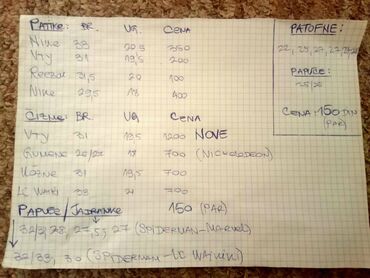 PATIKE: BR. UG. CENA
Nike 33 20,5 350
Vty 31 19,5 200
Reebok 31,5 20 100
Nike 29,5 18 400
ČIZME: BR. UG CENA
Vty 31 19,5 1200 NOVE
Gumene 28/29 18 700 (NICKELODEON)
Kožne 31 19,5 700
LC Waiki 33 21 700
PAPUČE/JAPANKE 150 (PAR)
32/31, 28, 27,5, 27 (SPIDERMAN-MARVEL)
32/33, 30 (SPIDERMAN-LC WAIKIKI)
PATOFNE:
22, 25, 27, 27,
PAPUČE:
25/26
CENA: 150 DIN
(PAR)